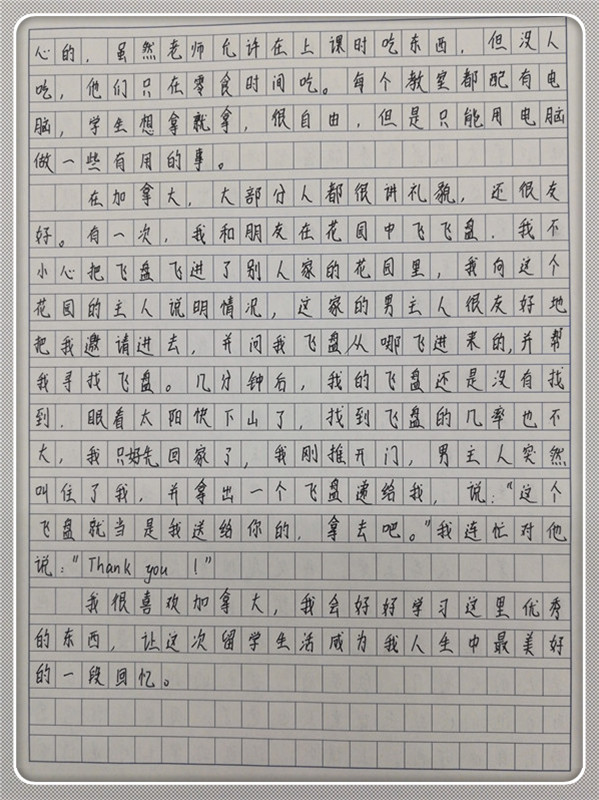 心的，虽然老师允许在上课时吃东西，但没人
吃，他们只在零食时间吃。每个教室都配有电
脑，学生想拿就拿，很自由，但是只能用电脑
做一些有用的事。
在加拿大，大部分人都很讲礼貌，还很友
好。有一次，我和朋友在花园中飞飞盘．我不
小心把飞盘飞进了别人家的花园里，我向这个
花园的主人说明情况，这家的男主人很友好地
把我邀请进去，并问我飞盘从哪飞进来的，并帮
我寻找飞盘。几分钟后，我的飞盘还是没有找
到．眼看太阳快下山了，找到飞盘的几率也不
大，我只好先回家了，我刚推开门，男主人突然
叫住了我，并拿出一个飞盘递给我，说：“这个
飞盘就当是我送给你的，拿去吧。”我连忙对他
说：“Thank you！”
我很喜欢加拿大，我会好好学习这里优秀
的东西，让这次留学生活成为我人生中最美好
的一段回忆。